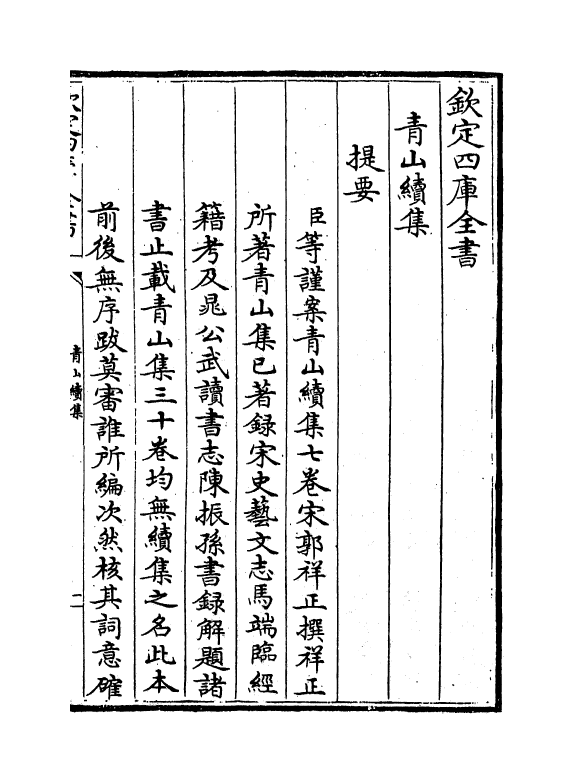 欽定四庫全書
青山續集
提要
臣等謹案青山續集七卷宋郭祥正撰祥正
所著青山集已著録宋史藝文志馬端臨經
籍考及晁公武讀書志陳振孫書録解題諸
書止載青山集三十卷均無續集之名此本
前後無序跋莫審誰所編次然核其詞意確
青山續集